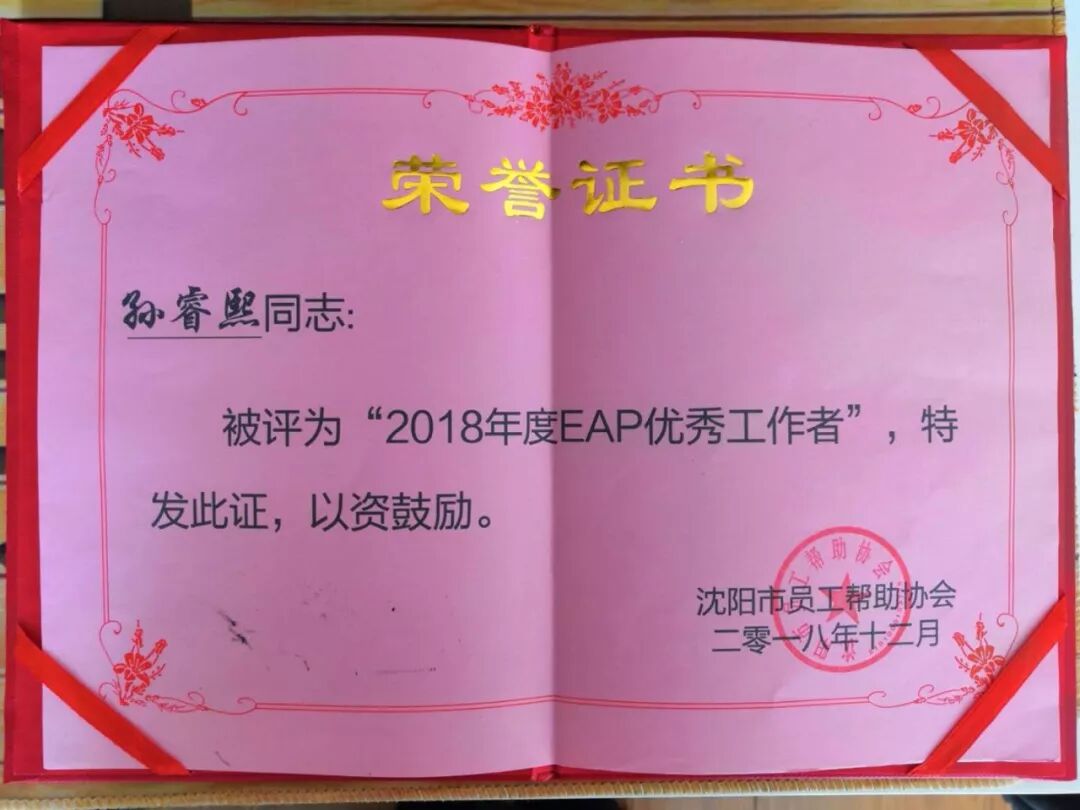 荣誉证书
孙睿熙同志:
被评为“2018年度EAP优秀工作者”,特
发此证,以资鼓励。
沈阳市员工帮助协会
二零一八年十二月